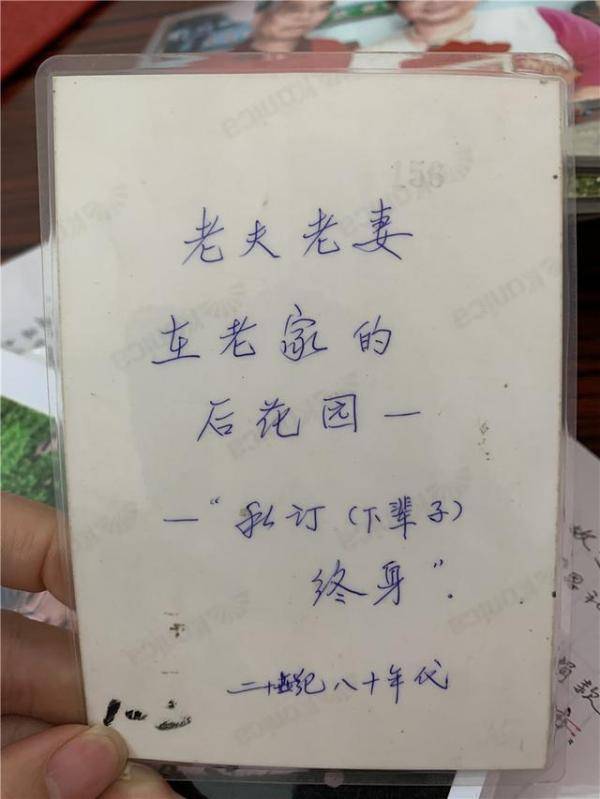 156
老夫老妻
在老家的
后花园—
—“私订（下辈子）
终身”.
二十世纪八十年代